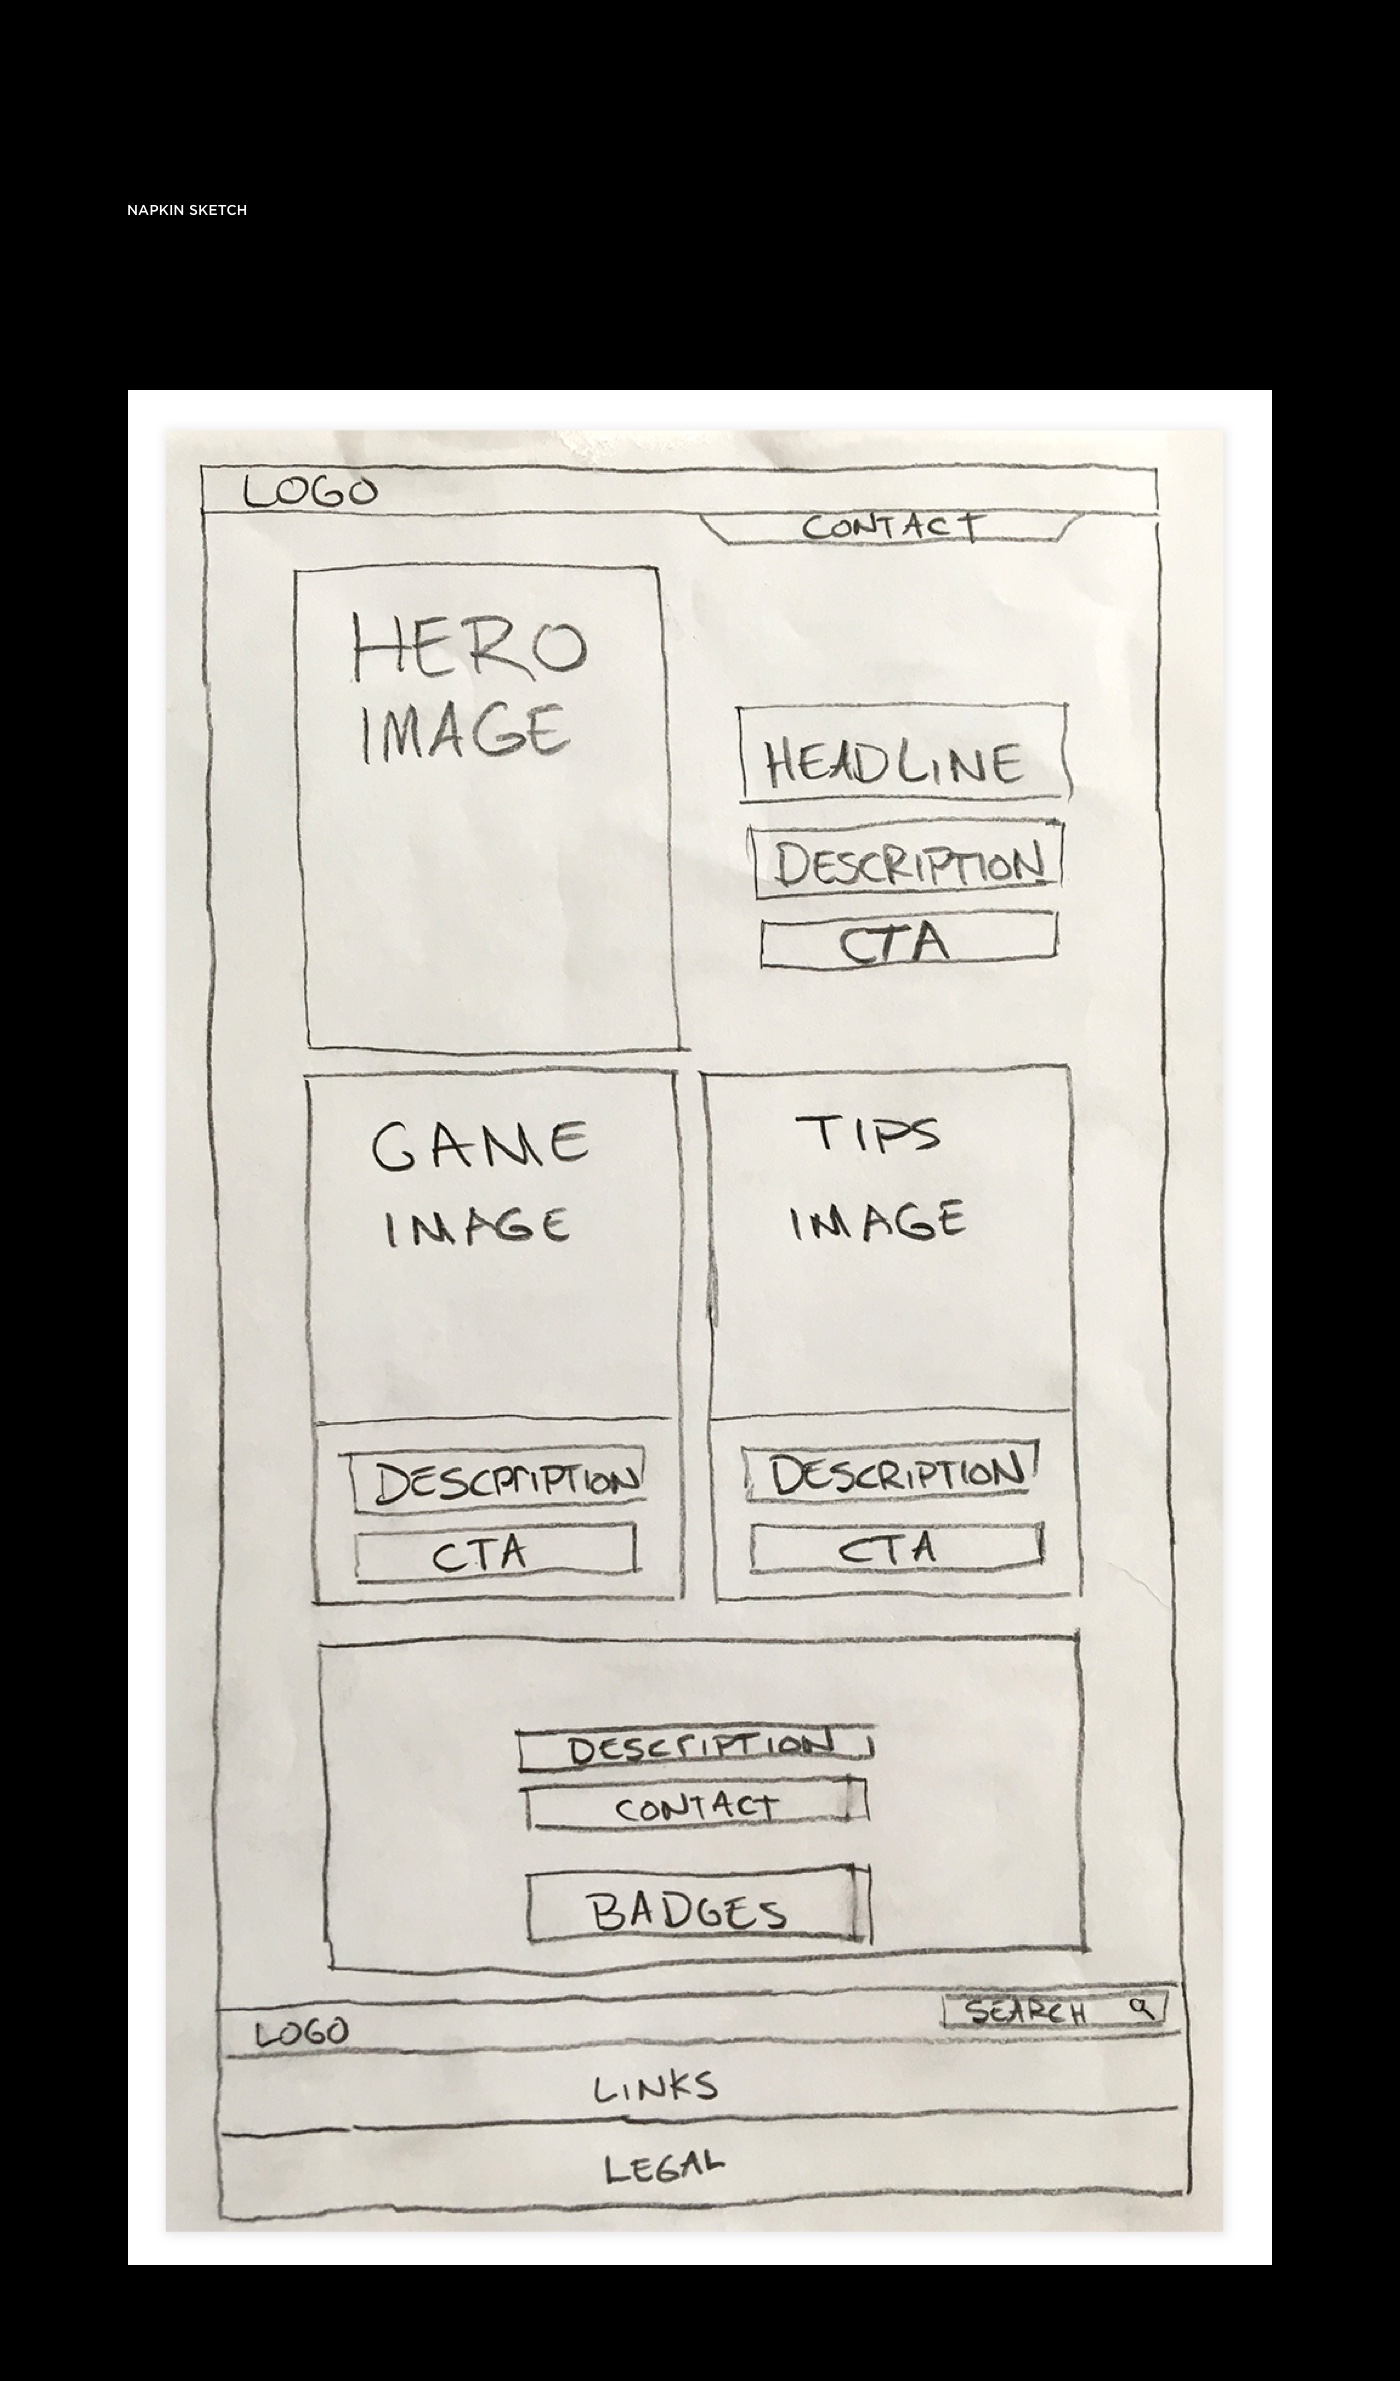 NAPKIN SKETCH
LOGO
CONTACT
HERO
IMAGE
HEADLINE
DESCRIPTION
CTA
GAME
IMAGE
DESCRIPTION
CTA
TIPS
IMAGE
DESCRIPTION
CTA
DESCRIPTION
CONTACT
BADGES
LOGO
SEARCH
LINKS
LEGAL